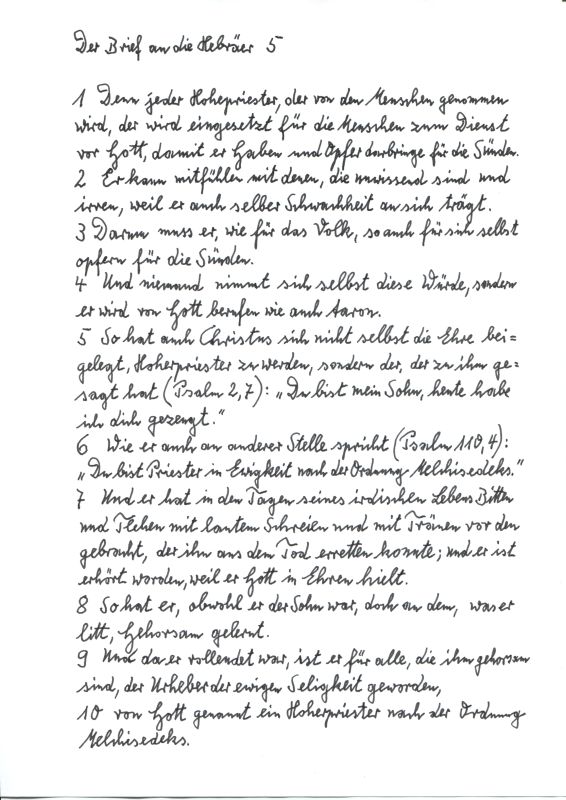 Der Brief an die Hebräer 5
1 Denn jeder Hohepriester, der von den Menschen genommen
wird, der wird eingesetzt für die Menschen zum Dienst
vor Gott, damit er Gaben und Opfer darbringe für die Sünden.
2 Er kann mitfühlen mit denen, die unwissend sind und
irren, weil er auch selber Schwachheit an sich trägt.
3 Darum muss er, wie für das Volk, so auch für sich selbst
opfern für die Sünden.
4 Und niemand nimmt sich selbst diese Würde, sondern
er wird von Gott berufen wie auch Aaron.
5 So hat auch Christus sich nicht selbst die Ehre bei=
gelegt, Hoherpriester zu werden, sondern der, der zu ihm ge=
sagt hat (Psalm 2,7): „Du bist mein Sohn, heute habe
ich dich gezeugt."
6 Wie er auch an anderer Stelle spricht (Psalm 110,4):
„Du bist Priester in Ewigkeit nach der Ordnung Melchisedeks."
7 Und er hat in den Tagen seines irdischen Lebens Bitten
und Flehen mit lautem Schreien und mit Tränen vor den
gebracht, der ihn aus dem Tod erretten konnte; und er ist
erhört worden, weil er Gott in Ehren hielt.
8 So hat er, obwohl er der Sohn war, doch an dem, was er
litt, Gehorsam gelernt.
9 Und da er vollendet war, ist er für alle, die ihm gehorsam
sind, der Urheber der ewigen Seligkeit geworden,
10 von Gott genannt ein Hoherpriester nach der Ordnung
Melchisedeks.